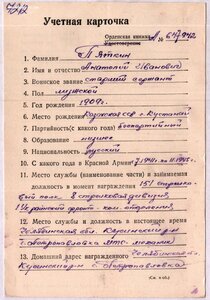 Учетная карточка
Орденская книжка № 647742
Удостоверение
1. Фамилия Пяткин
2. Имя и отчество Анатолий Иванович
3. Воинское звание старший сержант
4. Пол мужской
5. Год рождения 1909 г.
6. Место рождения г. Кустанай
7. Партийность(с какого года) беспартийный
8. Образование низшее
9. Национальность русский
10. С какого года в Красной Армии
11. Место службы (наименование части) и занимаемая
должность в момент награждения 151 стрелковый
полк 8 стрелковая дивизия,
Украинский фронт - ком. отделения.
12. Место службы и должность в настоящее время
Челябинская обл
механик
13. Домашний адрес награжденного Челябинская обл.
(См. н об.)